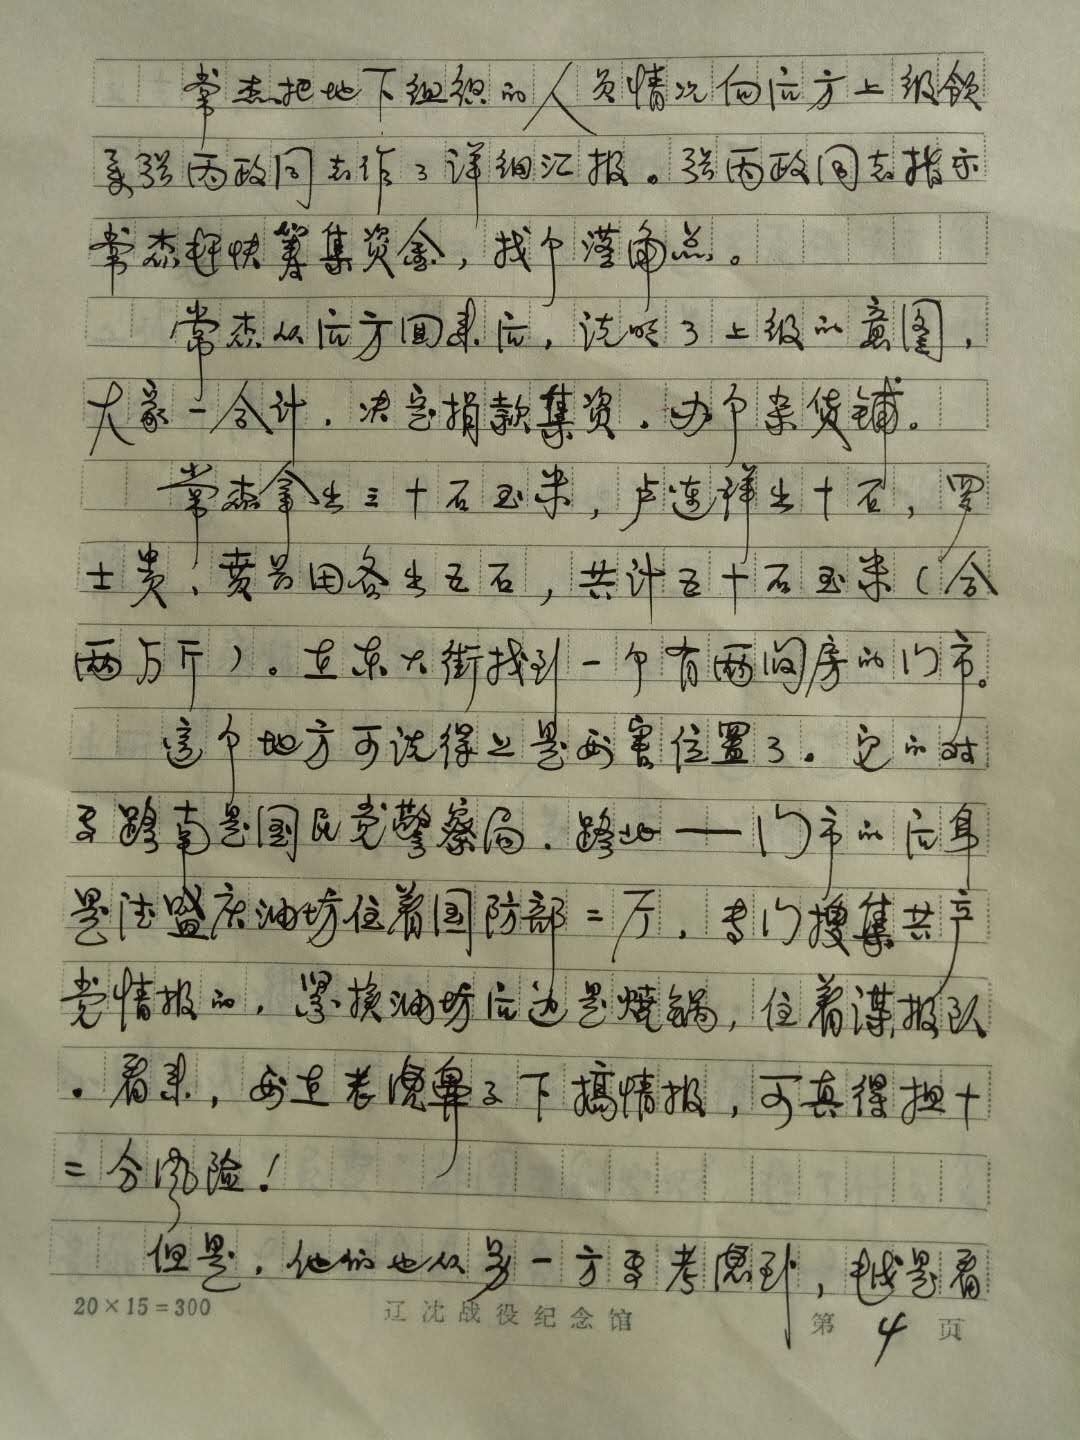 常杰把地下组织的人员情况向后方上级领
导张丙政同志作了详细汇报。张丙政同志指示
常杰赶快筹集资金，找个落角点。
常杰从后方回来后，说明了上级的意图，
大家一合计，决定捐款集资，办个杂货铺。
常杰拿出三十石玉米，卢连祥出十石，罗
士贵、黄景田各出五石，共计五十石玉米（合
两万斤）。在东大街找到一个有两间房的门市。
这个地方可说得上是要害位置了。它的对
面路南是国民党警察局，路北——门市的后身
是法盛庆油坊住着国防部二厅，专门搜集共产
党情报的，紧挨油坊后边是烧锅，住着谍报队
。看来，要在老虎鼻子下搞情报，可真得担十
二分风险！
但是，他们也从另一方面考虑到，越是看
20×15=300 辽沈战役纪念馆 第4页